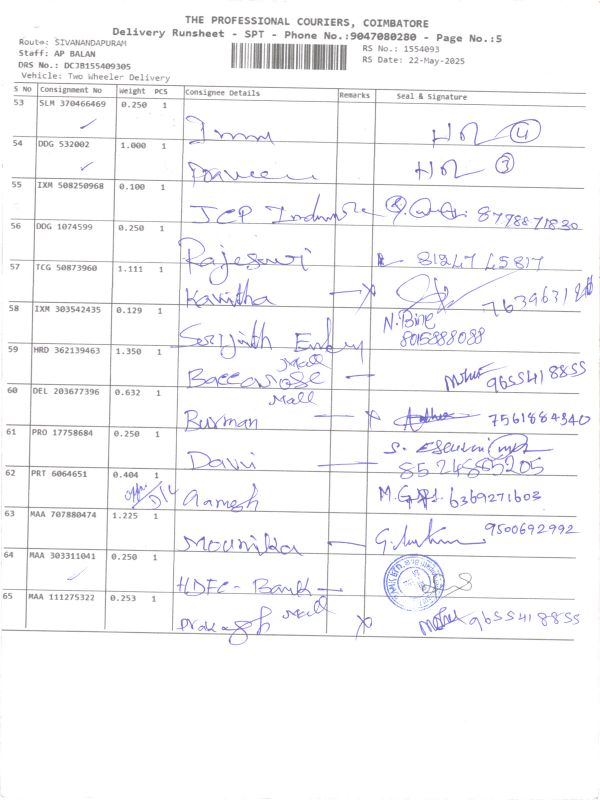 THE PROFESSIONAL COURIERS, COIMBATORE
Delivery Runsheet - SPT - Phone No.:9047080280 - Page No.:5
Route: SIVANANDAPURAM
Staff: AP BALAN
RS No.: 1554093
DRS No.: DCJB155409305
RS Date: 22-May-2025
Vehicle: Two Wheeler Delivery
S No Consignment No Weight PCS Consignee Details Remarks Seal & Signature
53 SLM 370466469 0.250 1
HOL 4
54 DDG 532002 1.000 1
Praveen HOL 3
55 IXM 508250968 0.100 1
JCP 8778871830
56 DDG 1074599 0.250 1
Rajeswari 81247 45817
57 TCG 50873960 1.111 1
Kavitha
58 IXM 303542435 0.129 1
N. Bine
8015888088
59 HRD 362139463 1.350 1
Mall
9655418855
60 DEL 203677396 0.632 1
Mall
Burman 7561884340
61 PRO 17758684 0.250 1
8524885205
62 PRT 6064651 0.404 1
6369271603
63 MAA 707880474 1.225 1
Mounika 9500692992
64 MAA 303311041 0.250 1
HDFC - Bank
65 MAA 111275322 0.253 1
Mall
9655418855